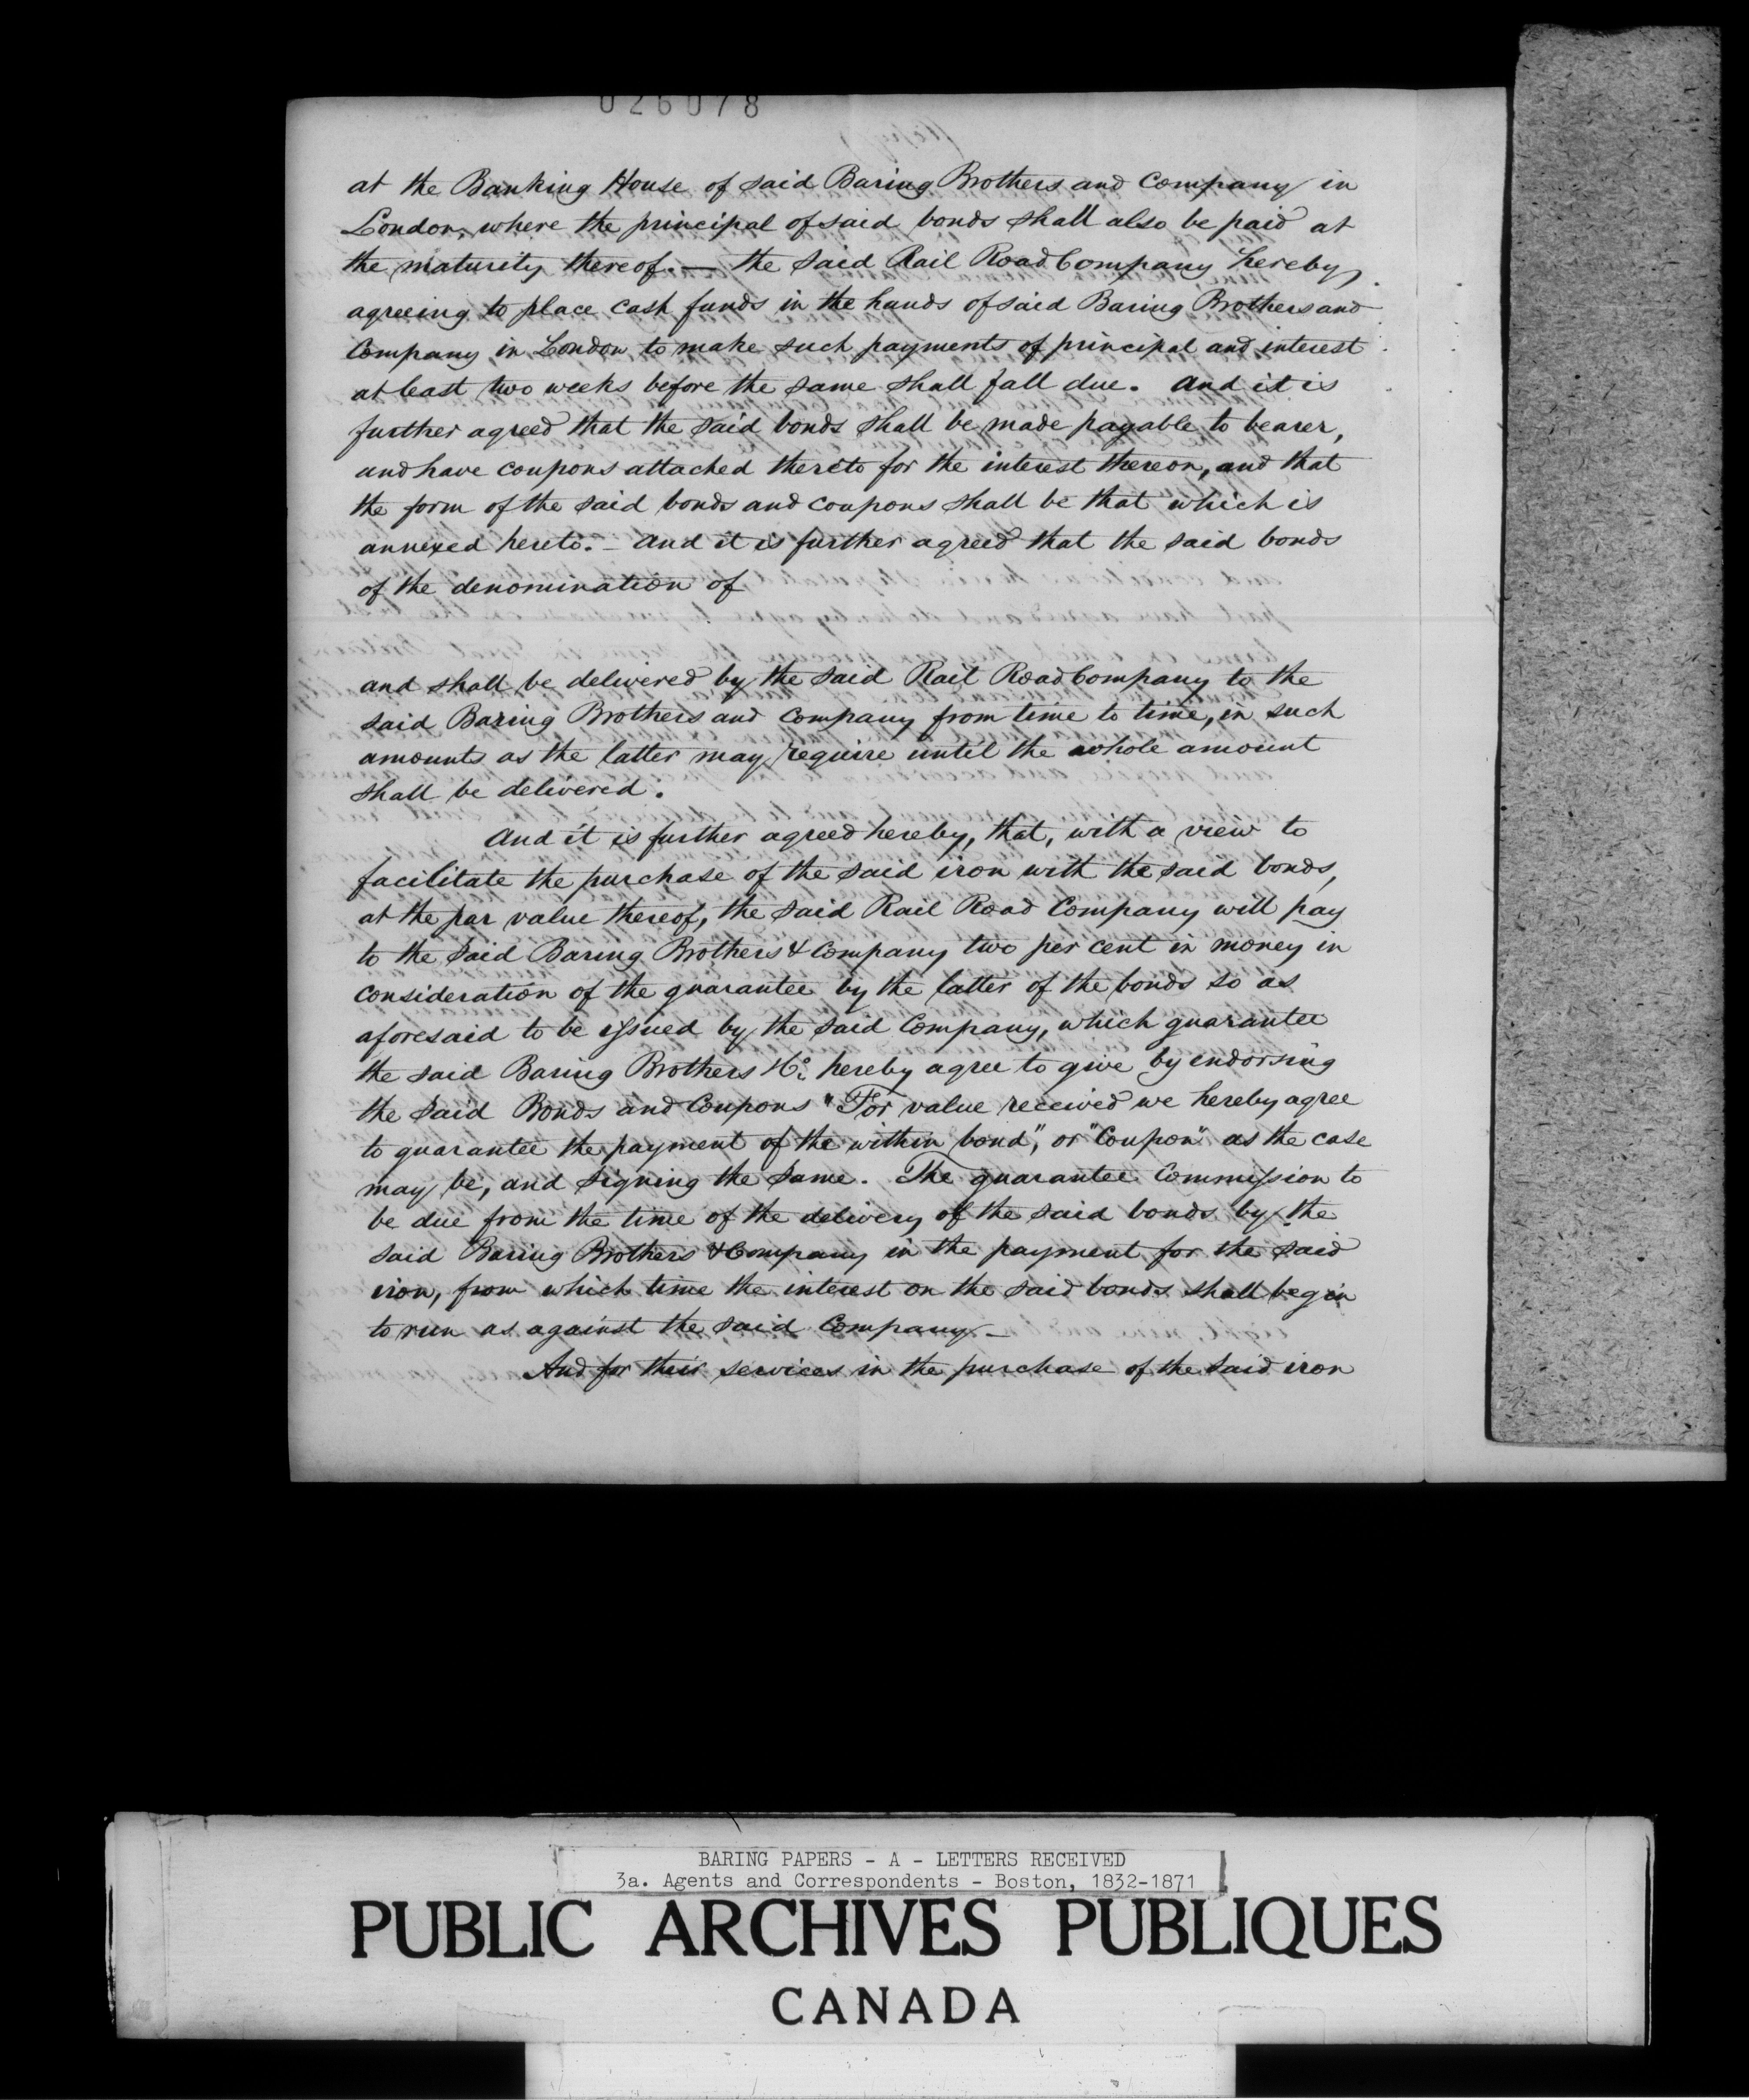 026078
at the Banking House of said Baring Brothers and Company in
London, where the principal of said bonds shall also be paid at
the maturity thereof. — the said Rail Road Company hereby,
agreeing to place cash funds in the hands of said Baring Brothers and
Company in London to make such payments of principal and interest
at least two weeks before the same shall fall due. And it is
further agreed that the said bonds shall be made payable to bearer,
and have coupons attached thereto for the interest thereon, and that
the form of the said bonds and coupons shall be that which is
annexed hereto. – And it is further agreed that the said bonds
of the denomination of
and shall be delivered by the said Rail Road Company to the
said Baring Brothers and Company from time to time, in such
amounts as the latter may require until the whole amount
shall be delivered.
And it is further agreed hereby, that, with a view to
facilitate the purchase of the said iron with the said bonds,
at the par value thereof, the said Rail Road Company will pay
to the said Baring Brothers & Company two per cent in money in
consideration of the guarantee by the latter of the bonds so as
aforesaid to be issued by the said Company, which guarantee
the said Baring Brothers & Co. hereby agree to give by endorsing
the said Bonds and Coupons "For value received we hereby agree
to guarantee the payment of the within bond", or "Coupon" as the case
may be, and signing the same. The guarantee Commission to
be due from the time of the delivery of the said bonds by the
said Baring Brothers & Company in the payment for the said
iron, from which time the interest on the said bonds shall begin
to run as against the said Company. –
And for their services in the purchase of the said iron
BARING PAPERS - A - LETTERS RECEIVED
3a. Agents and Correspondents - Boston, 1832-1871
PUBLIC ARCHIVES PUBLIQUES
CANADA